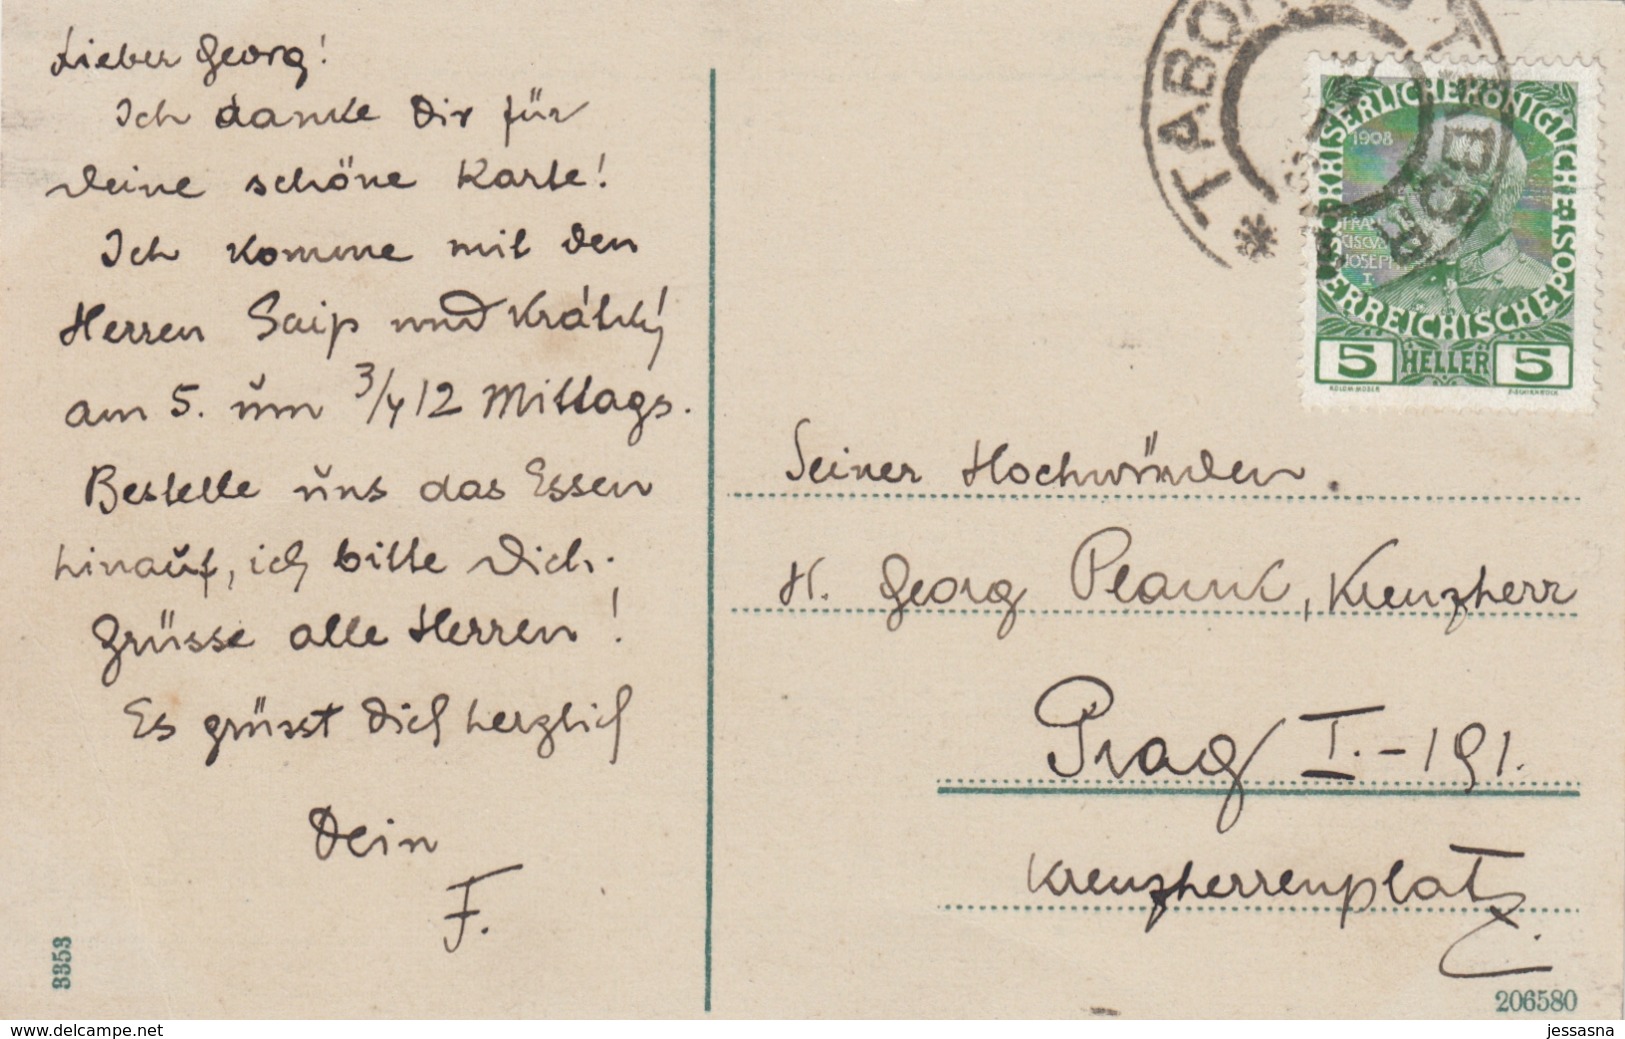 Lieber Georg!
Ich danke Dir für
Deine schöne Karte!
Ich komme mit den
Herren Saip und Králický
am 5. um 3/4 12 Mittags.
Bestelle uns das Essen
hinauf, ich bitte Dich.
Grüsse alle Herren!
Es grüsst Dich herzlich
Dein
F.
3353
TABOR
KAISERLICHE KÖNIGLICHE ÖSTERREICHISCHE POST
1908
FRAN
CISCVS
JOSEPH
I.
5 HELLER 5
KOLOM. MOSER
Seiner Hochwürden
H. Georg Plank, Kreuzherr
Prag I.-191.
Kreuzherrenplatz.
206580
www.delcampe.net
jessasna